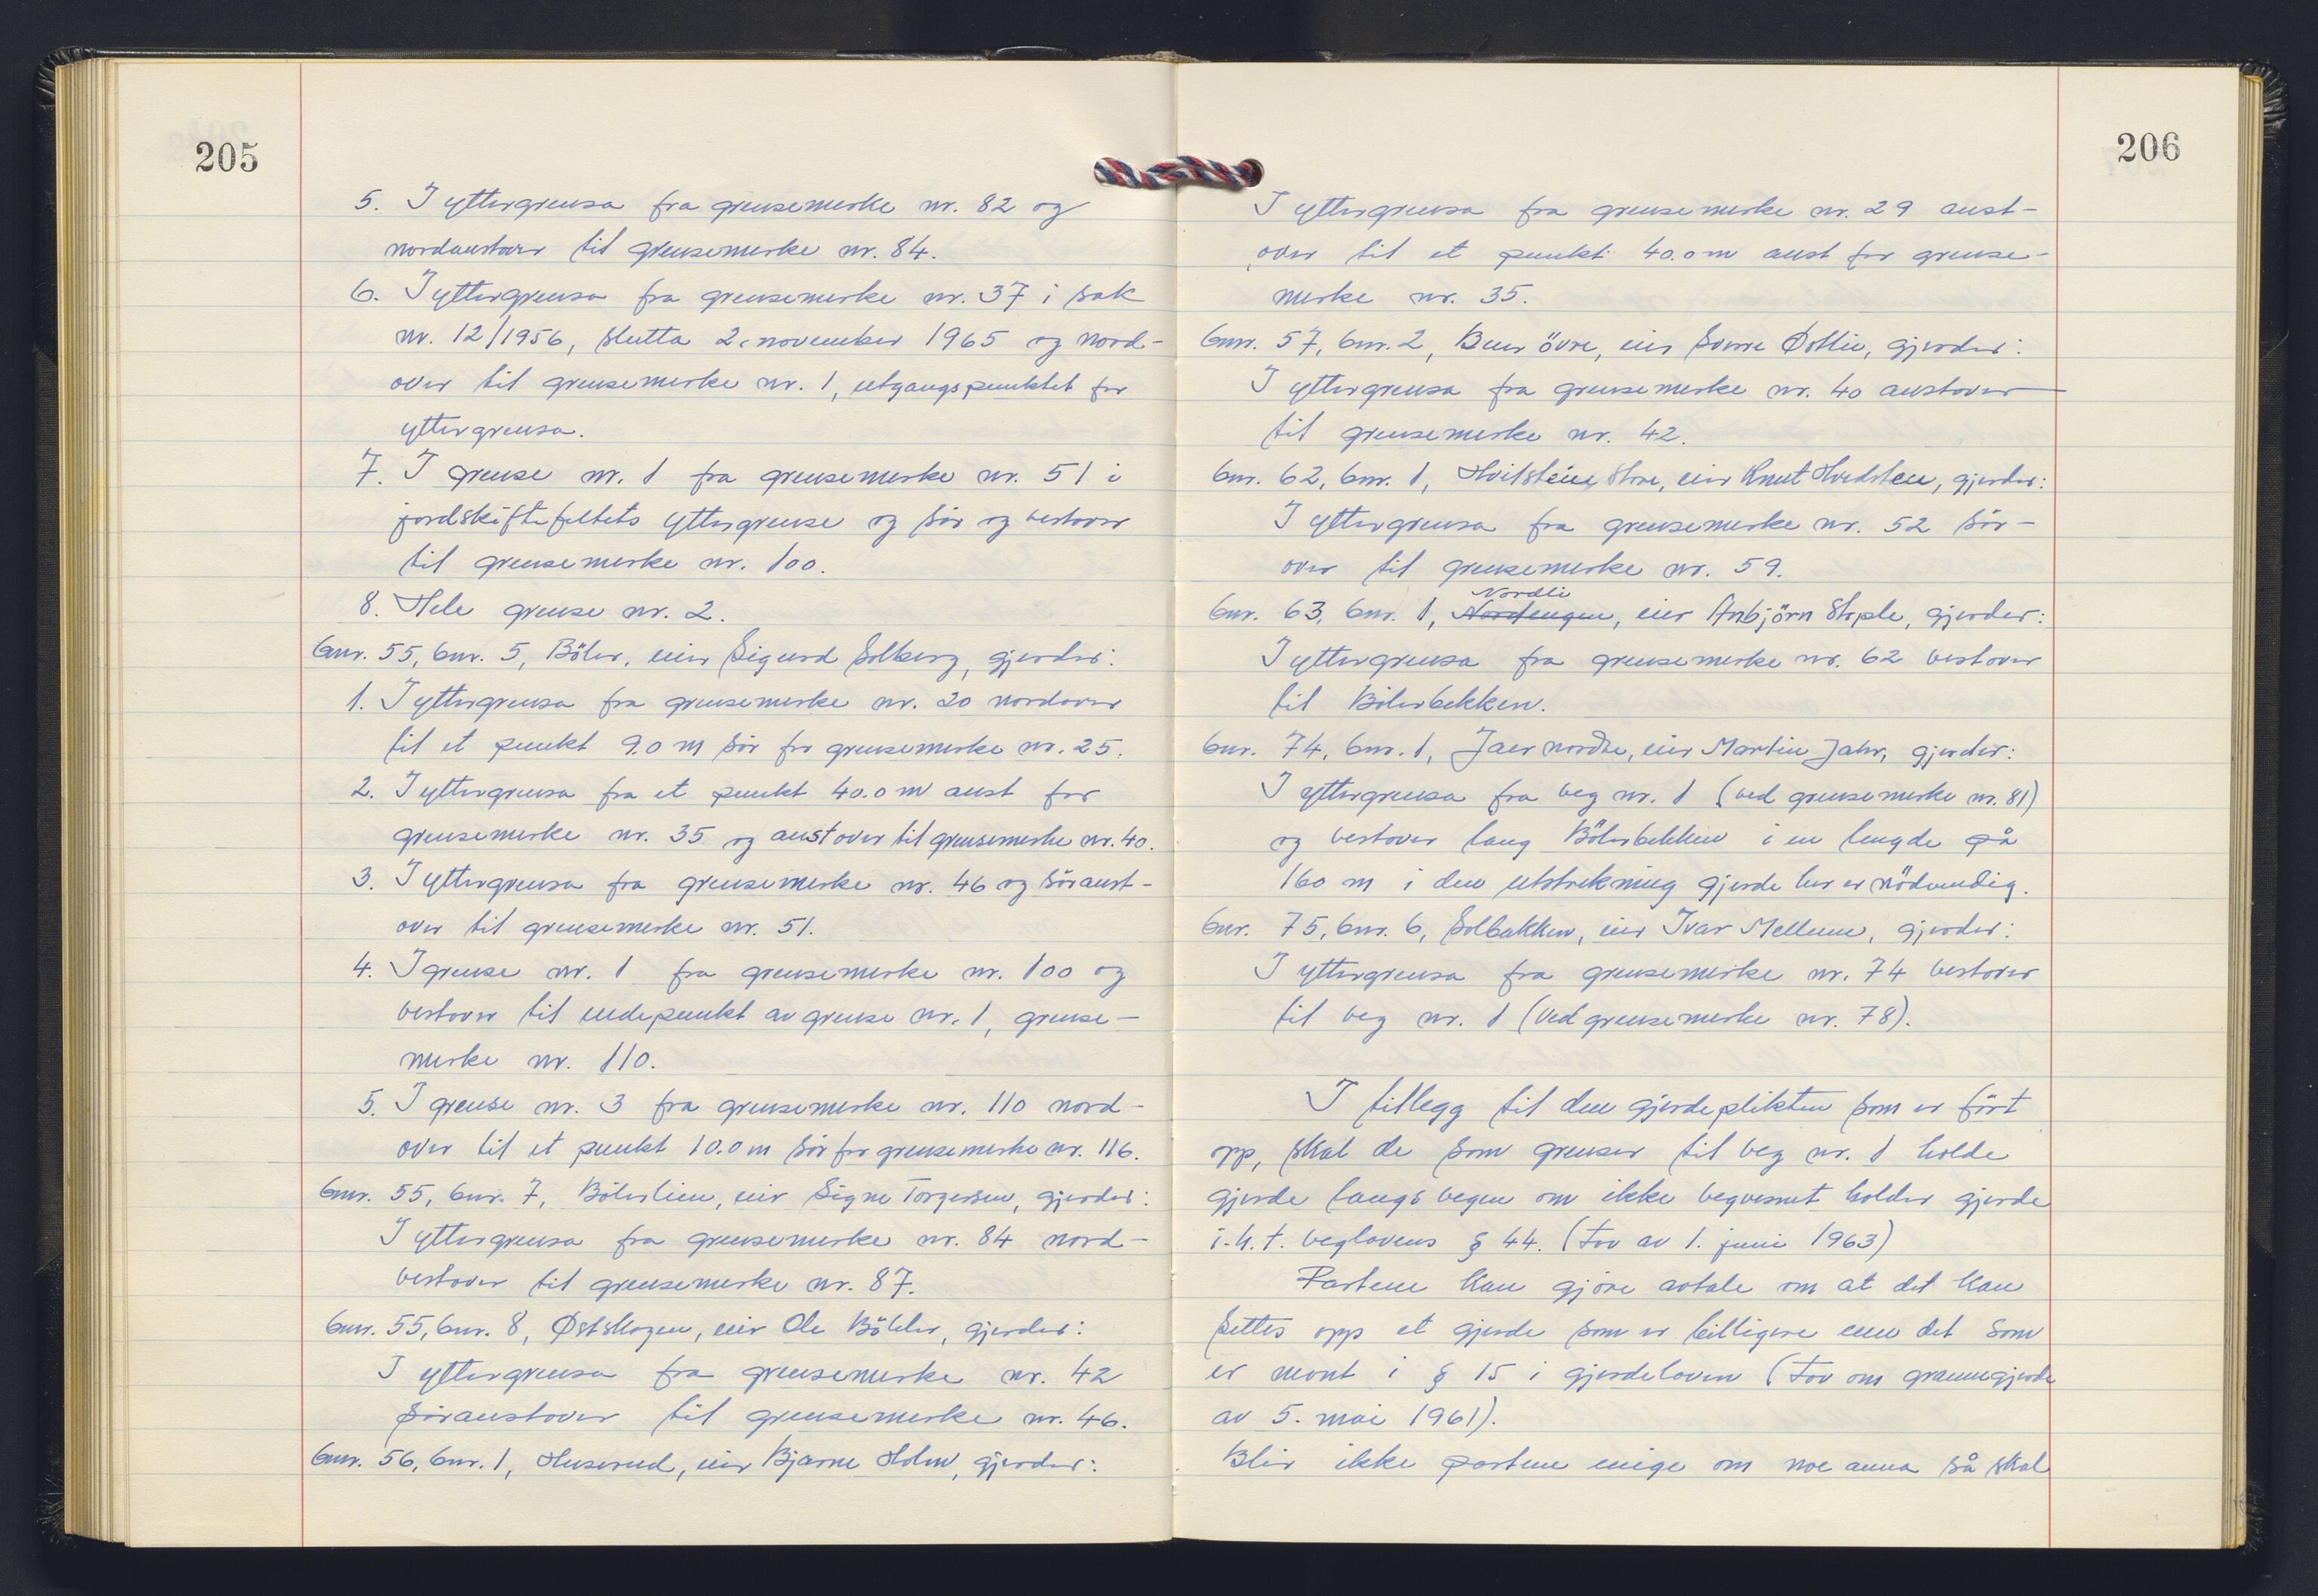 205
5. I yttergrensa fra grensemerke nr. 82 og
nordaustover til grensemerke nr. 84.
6. I yttergrensa fra grensemerke nr. 37 i sak
nr. 12/1956, slutta 2. november 1965 og nord-
over til grensemerke nr. 1, utgangspunktet for
yttergrensa.
7. I grense nr. 1 fra grensemerke nr. 51 i
jordskiftefeltets yttergrense og sör og vestover
til grensemerke nr. 100.
8. Hele grense nr. 2.
Gnr. 55, bnr. 5, Böler, eier Sigurd Solberg, gjerder:
1. I yttergrensa fra grensemerke nr. 20 nordover
til et punkt 9.0 m sör for grensemerke nr. 25.
2. I yttergrensa fra et punkt 40.0 m aust for
grensemerke nr. 35 og austover til grensemerke nr. 40.
3. I yttergrensa fra grensemerke nr. 46 og söraust-
over til grensemerke nr. 51.
4. I grense nr. 1 fra grensemerke nr. 100 og
vestover til endepunkt av grense nr. 1, grense-
merke nr. 110.
5. I grense nr. 3 fra grensemerke nr. 110 nord-
over til et punkt 10.0 m sör for grensemerke nr. 116.
Gnr. 55, bnr. 7, Bölerlien, eier Signe Torgersen, gjerder:
I yttergrensa fra grensemerke nr. 84 nord-
vestover til grensemerke nr. 87.
Gnr. 55, bnr. 8, Østskogen, eier Ole Böhler, gjerder:
I yttergrensa fra grensemerke nr. 42
söraustover til grensemerke nr. 46.
Gnr. 56, bnr. 1, Huserud, eier Bjarne Holm, gjerder:
206
I yttergrensa fra grensemerke nr. 29 aust-
over til et punkt 40.0 m aust for grense-
merke nr. 35.
Gnr. 57, bnr. 2, Buer övre, eier Sverre Dotlie, gjerder:
I yttergrensa fra grensemerke nr. 40 austover
til grensemerke nr. 42.
Gnr. 62, bnr. 1, Hvitstein store, eier Knut Hvidsten, gjerder:
I yttergrensa fra grensemerke nr. 52 sör-
over til grensemerke nr. 59.
Nordli
Gnr. 63, bnr. 1, Nordengen, eier Anbjörn Stople, gjerder:
I yttergrensa fra grensemerke nr. 62 vestover
til Bölerbekken.
Gnr. 74, bnr. 1, Jaer nordre, eier Martin Jahr, gjerder:
I yttergrensa fra veg nr. 1 (ved grensemerke nr. 81)
og vestover lang Bölerbekken i en lengde på
160 m i den utstrekning gjerde her er nödvendig.
Gnr. 75, bnr. 6, Solbakken, eier Ivar Mellum, gjerder:
I yttergrensa fra grensemerke nr. 74 vestover
til veg nr. 1 (ved grensemerke nr. 78).
I tillegg til den gjerdeplikten som er fört
opp, skal de som grenser til veg nr. 1 holde
gjerde langs vegen om ikke vegvesnet holder gjerde
i.h.t. veglovens § 44. (Lov av 1. juni 1963)
Partene kan gjöre avtale om at det kan
settes opp et gjerde som er billigere enn det som
er nevnt i § 15 i gjerdeloven (Lov om granngjerde
av 5. mai 1961).
Blir ikke partene enige om noe anna så skal